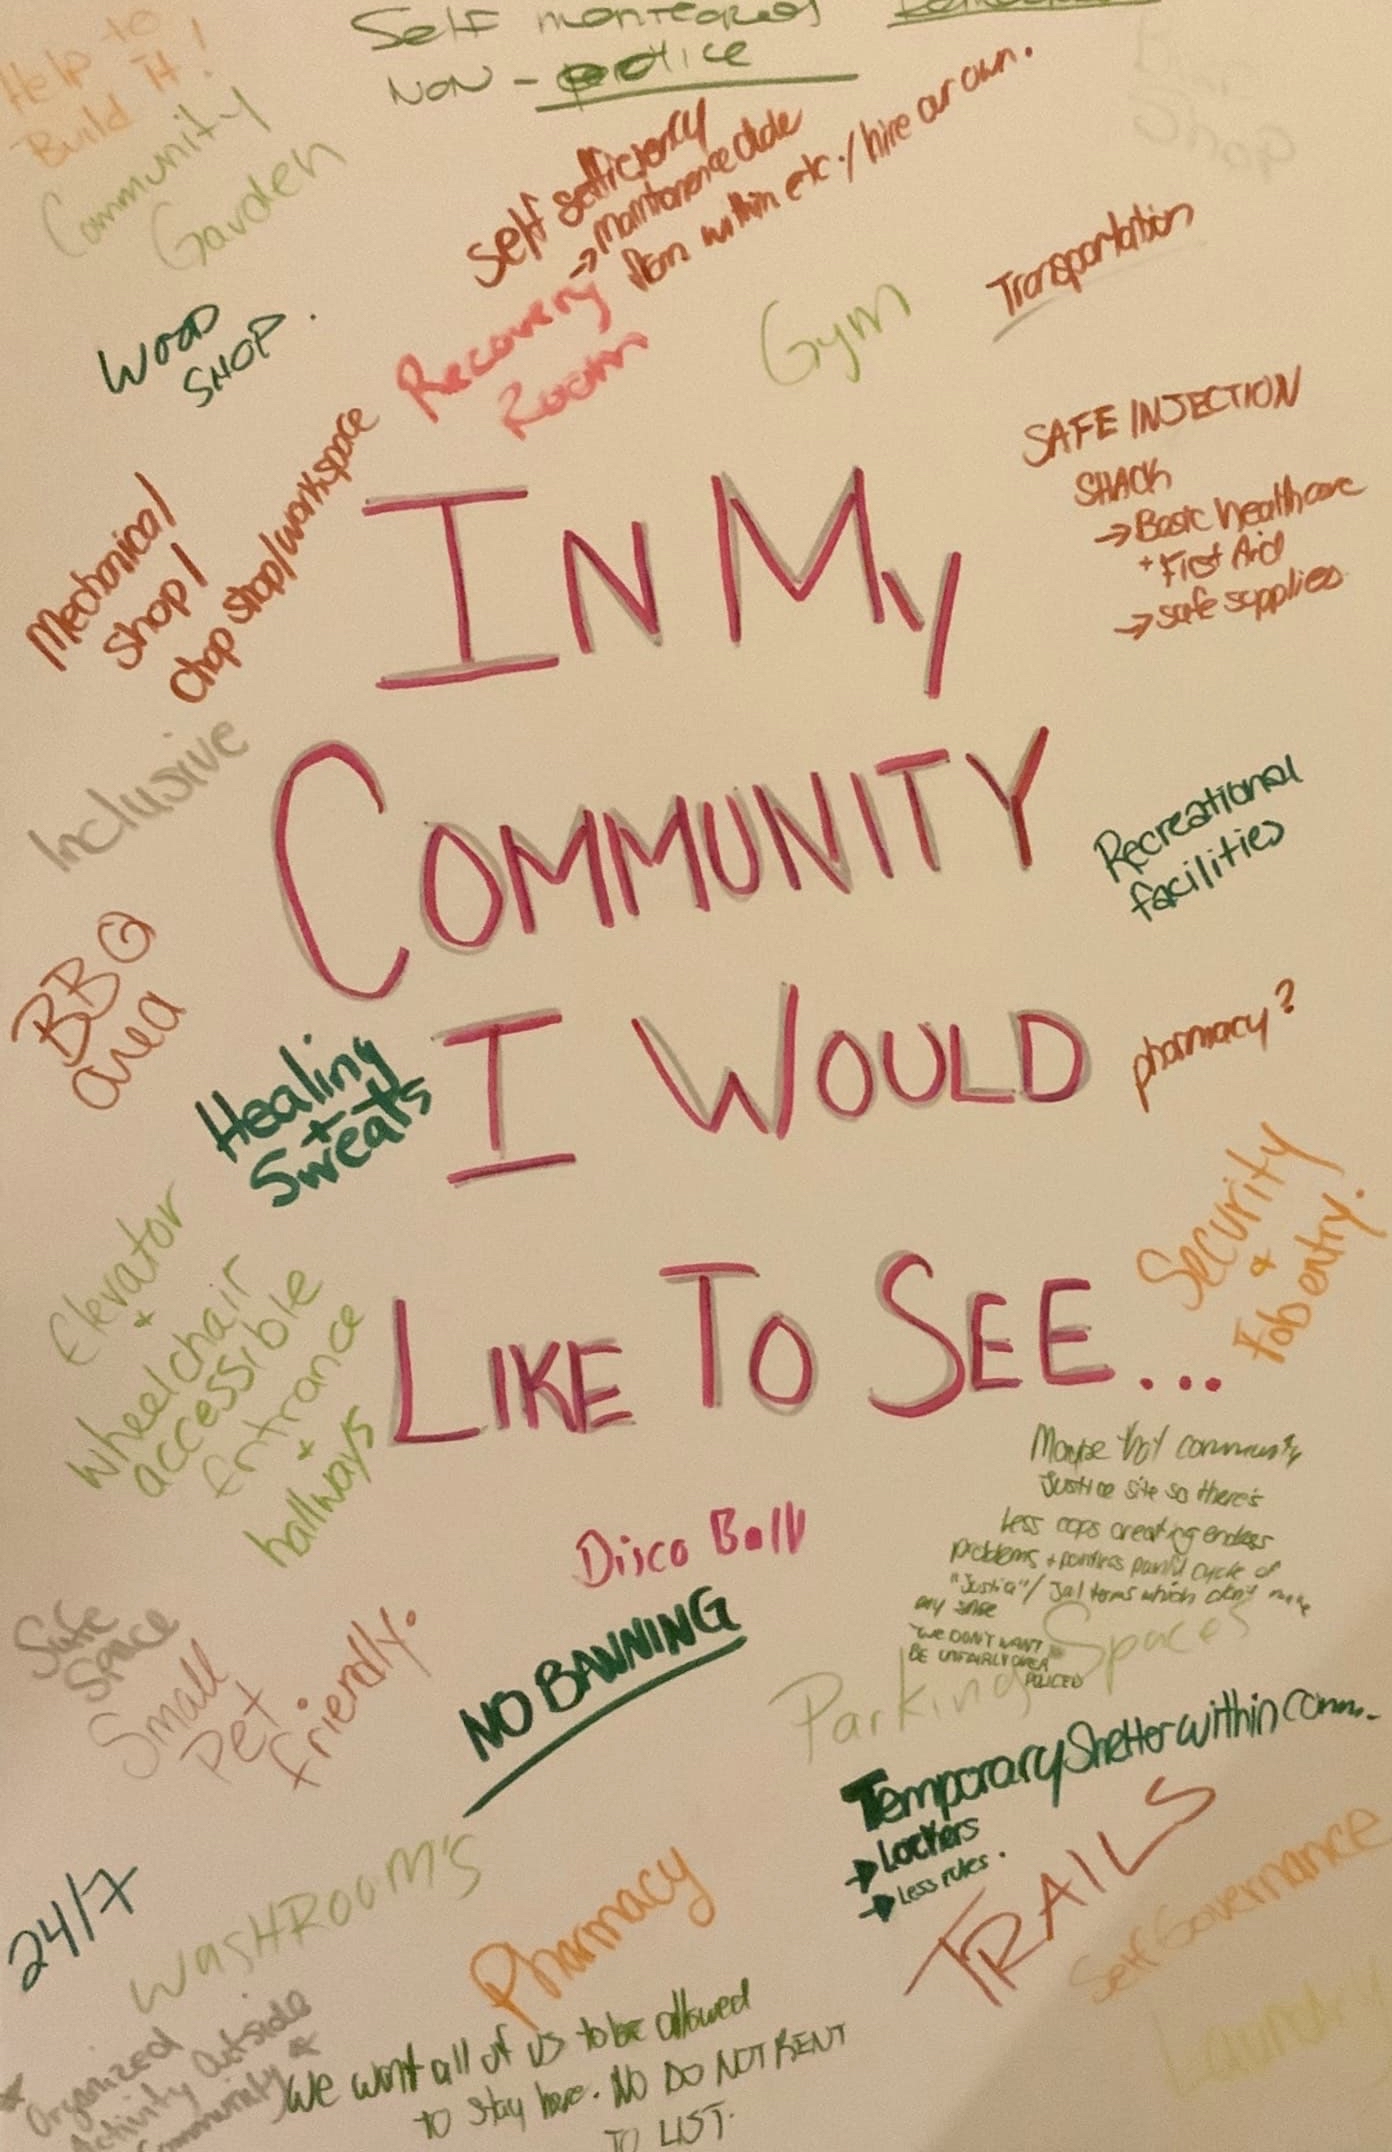 Help to
Build it!
Self montered
NON - police
Community
Garden
Self sufficiency
→ maintanence dude
from within etc./hire our own.
Transportation
WOOD
SHOP.
Recovery
Room
Gym
SAFE INJECTION
SHACK
→ Basic healthcare
+ First Aid
→ safe supplies
Mechanical
shop/
chop shop/workspace
IN MY
COMMUNITY
I WOULD
LIKE TO SEE...
Inclusive
Recreational
facilities
BBQ
area
Healing
+
Sweats
pharmacy?
Security
+
Fob entry!
Elevator
+
wheelchair
accessible
Entrance
+
hallways
Maybe that community
Justice site so there's
Less cops creating endless
problems + pointless painful cycle of
"Justice"/ Jail terms which don't make
any sense
"WE DON'T WANT TO
BE UNFAIRLY OVER
POLICED
Disco Ball
Safe
Space
Small
Pet
friendly.
NO BANNING
Parking Spaces
Temporary Shelter within comm.
→ Lockers
→ Less rules.
TRAILS
24/7
WASHROOM'S
Pharmacy
Self Governance
Laundry
* Organized
Activity Outside
Community *
We want all of us to be allowed
to stay here. NO DO NOT RENT
TO LIST.